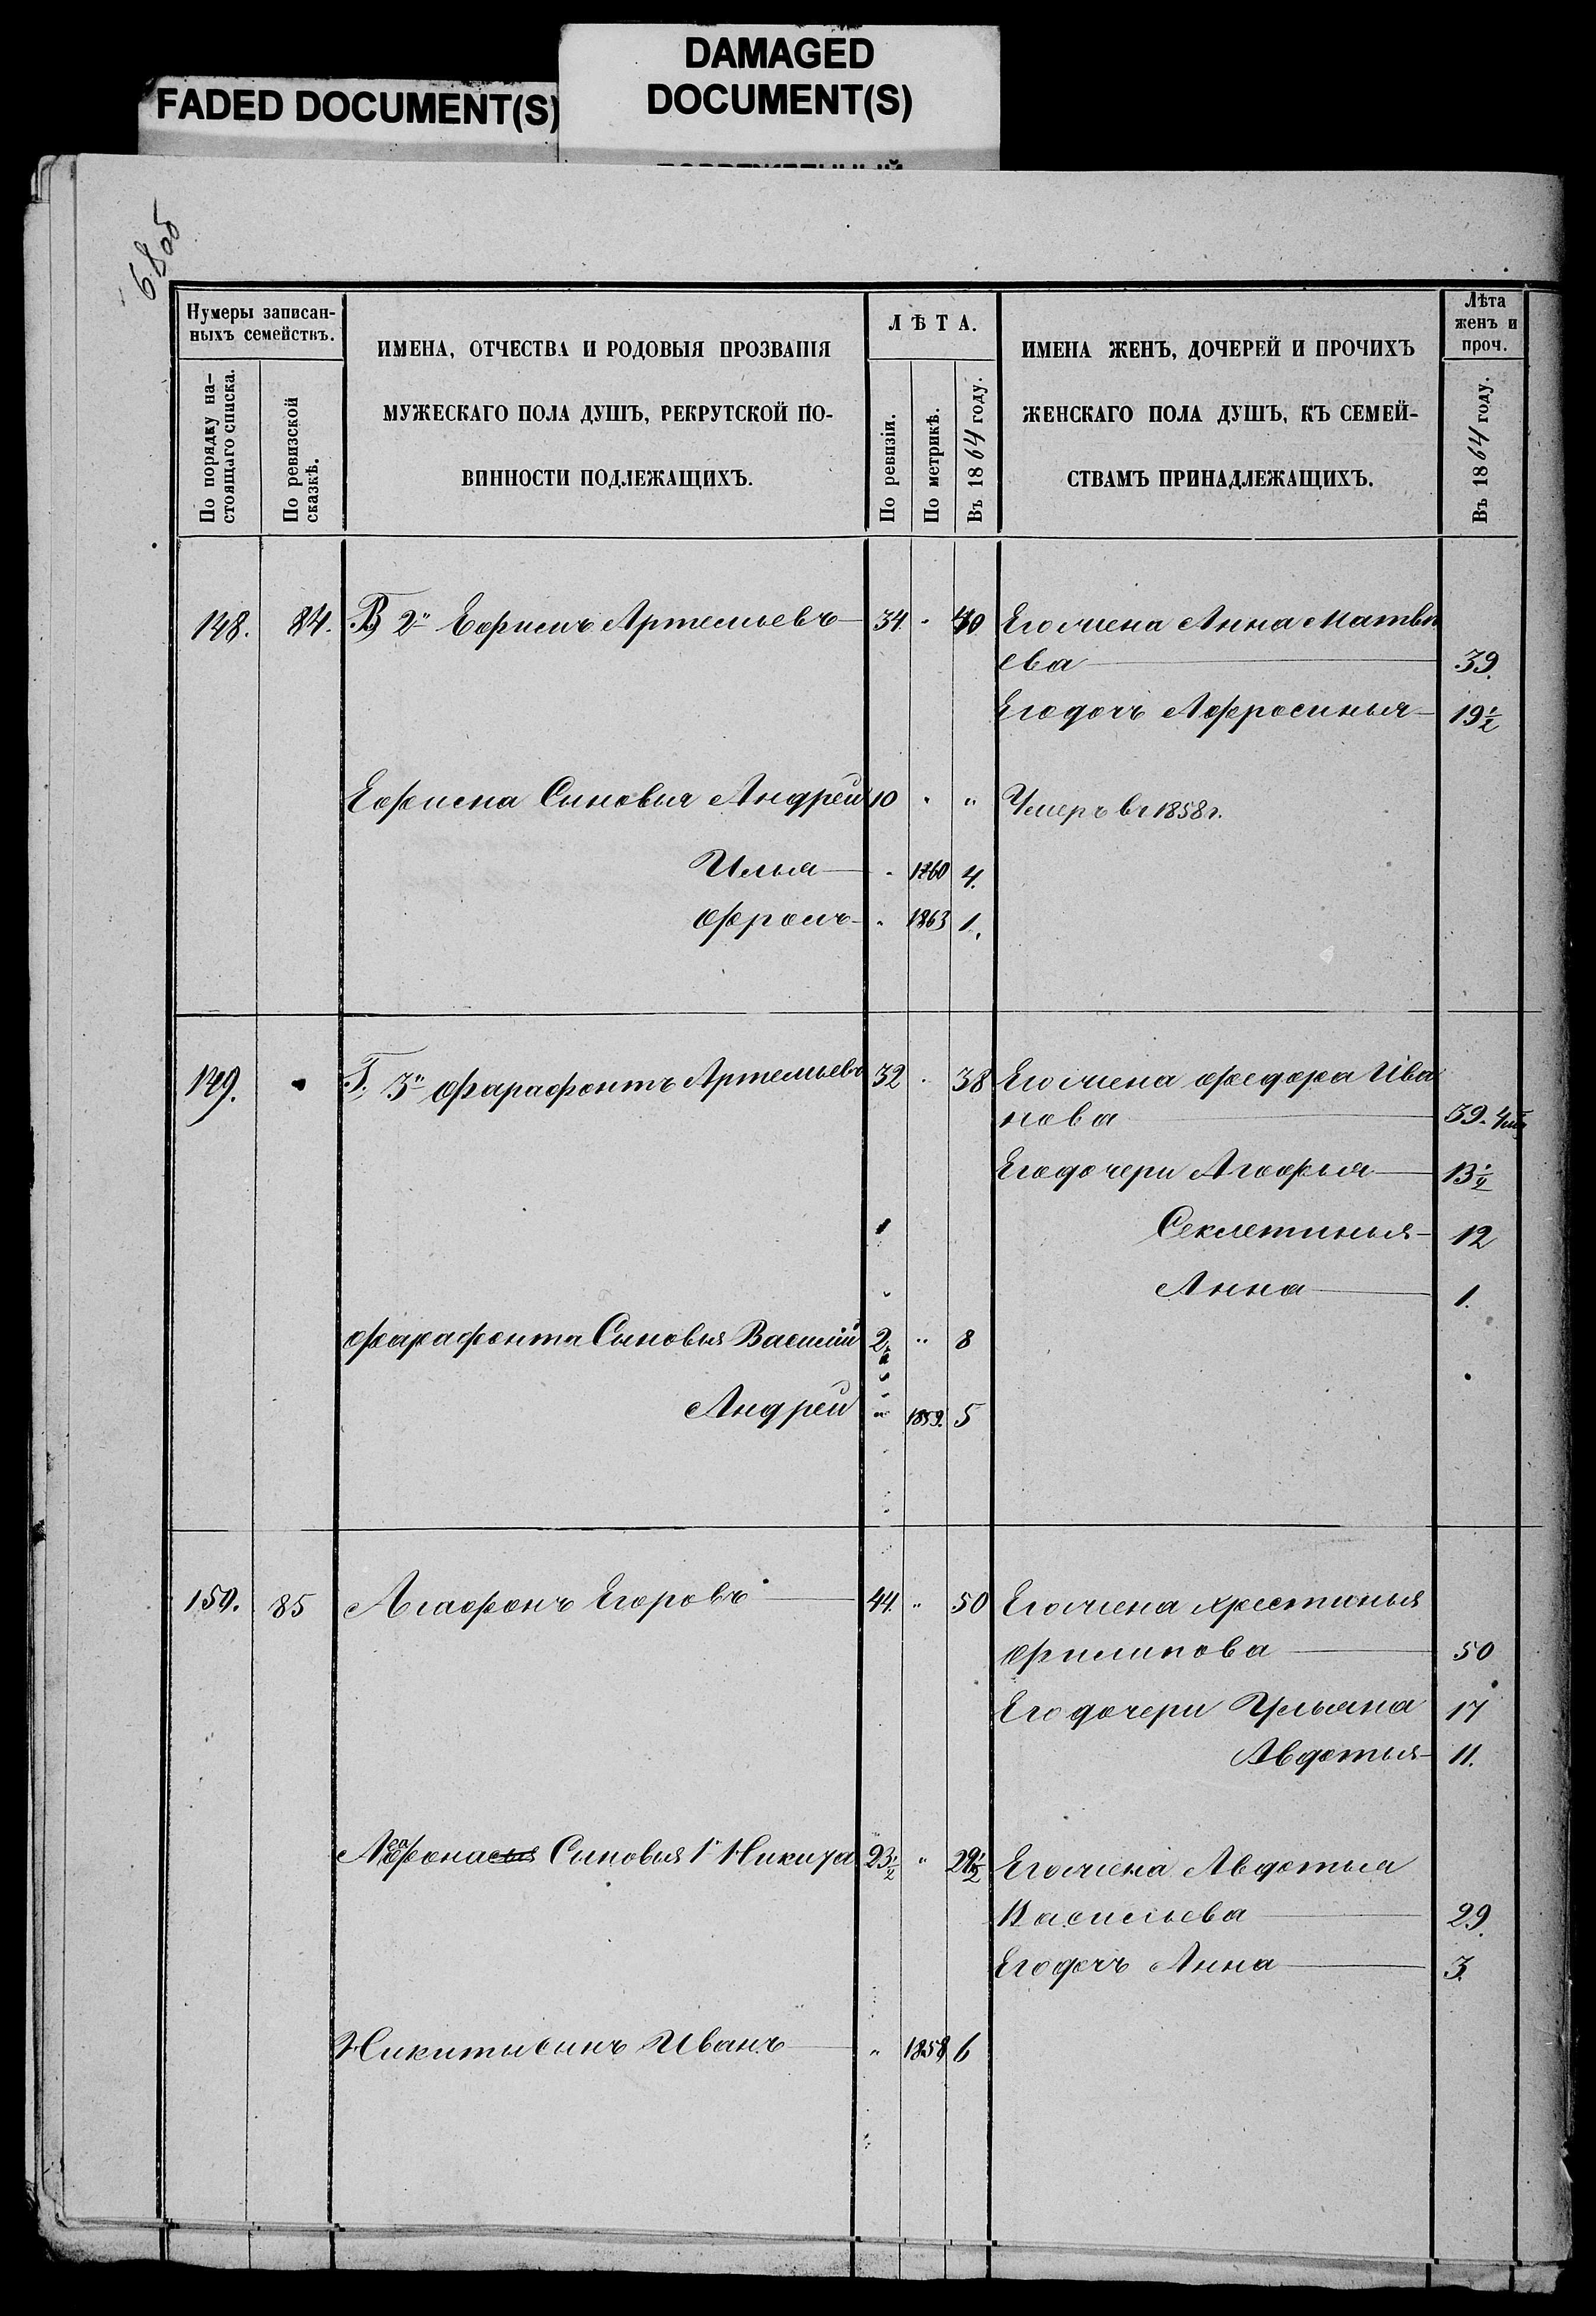 FADED DOCUMENT(S)
DAMAGED
DOCUMENT(S)
68об
Нумеры записан-
ныхъ семействъ.
По порядку на-
стоящаго списка.
По ревизской
сказкѣ.
ИМЕНА, ОТЧЕСТВА И РОДОВЫЯ ПРОЗВАНІЯ
МУЖЕСКАГО ПОЛА ДУШЪ, РЕКРУТСКОЙ ПО-
ВИННОСТИ ПОДЛЕЖАЩИХЪ.
ЛѢТА.
По ревизіи.
По метрикѣ.
Въ 1864 году.
ИМЕНА ЖЕНЪ, ДОЧЕРЕЙ И ПРОЧИХЪ
ЖЕНСКАГО ПОЛА ДУШЪ, КЪ СЕМЕЙ-
СТВАМЪ ПРИНАДЛЕЖАЩИХЪ.
Лѣта
женъ и
проч.
Въ 1864 году.
148. 84. В) 2й Ефимъ Артемьевъ 34. " 40 Его жена Анна Матвѣ
ева 39.
Его дочь Афросинья 19½
Ефима Сыновья Андрей 10 " " Умеръ въ 1858 г.
Илья " 1860 4.
Фролъ " 1863 1.
149. Г, 3й Фарафонтъ Артемьевъ 32 " 38 Его жена Федора Ива
нова 39.
Его дочери Агафья 13½
Секлетинья 12
Анна 1.
Фарафонта Сыновья Василій 2 " 8
Андрей " 1859. 5
150. 85 Агафонъ Егоровъ 44. " 50 Его жена Хрестинья
Филипова 50
Его дочери Ульяна 17
Авдотья 11.
Агафона Сыновья 1й Никита 23½ " 29½ Его жена Авдотья
Васильева 29.
Его дочь Анна 3.
Никиты сынъ Иванъ " 1858 6